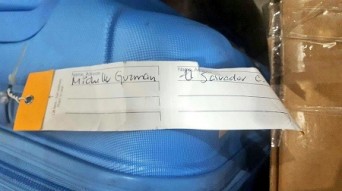 Michelle Guzman
El Salvador C.